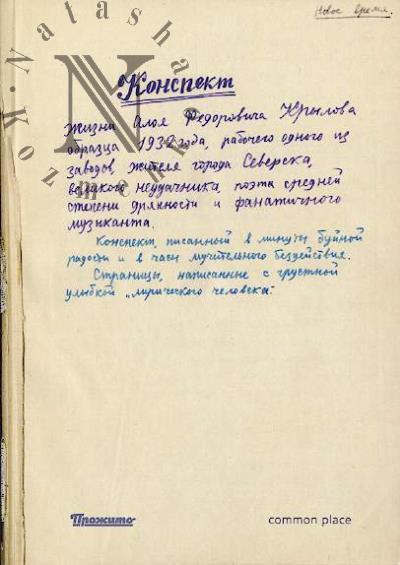 Новое время.
Конспект
жизни Алоя Федоровича Крылова
образца 1932 года, рабочего одного из
заводов жителя города Северска,
великого неудачника, поэта средней
степени дрянности и фанатичного
музыканта.
Конспект, писанный в минуты буйной
радости и в часы мучительного бездействия.
Страницы, написанные с грустной
улыбкой „лирического человека“.
Прожито
common place
Natasha
Kozmenko